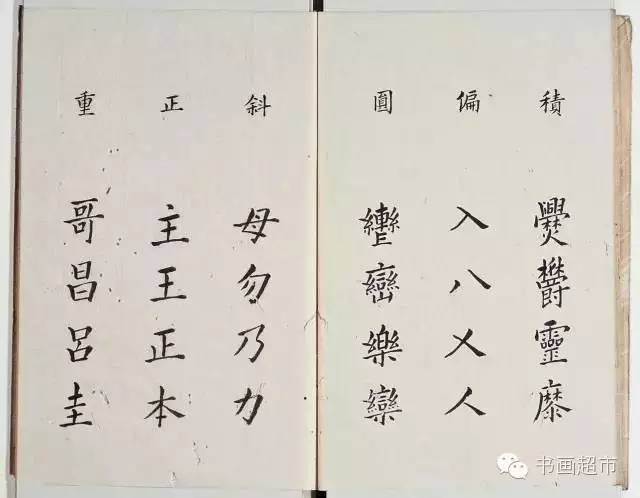 積
爨鬱靈縻
偏
入八乂人
圓
轡巒樂欒
斜
母勿乃力
正
主王正本
重
哥昌呂圭
书画超市